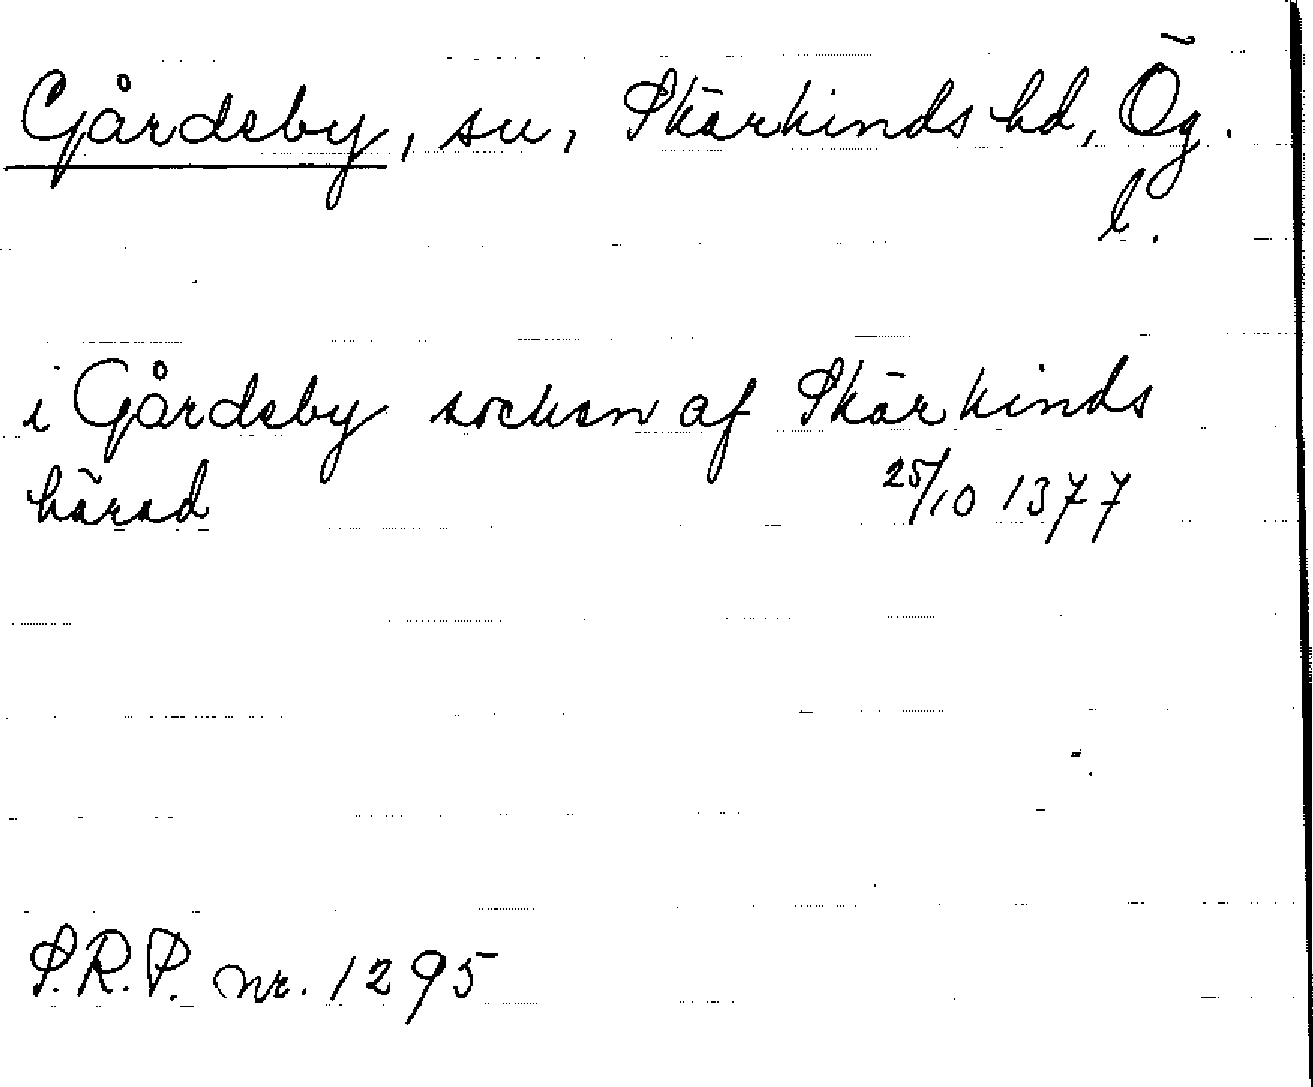 Gårdeby, sn, Skärkinds hd, Ög.
l.
i Gårdeby socken af Skärkinds
härad 25/10 1377
S.R.P. nr. 1295